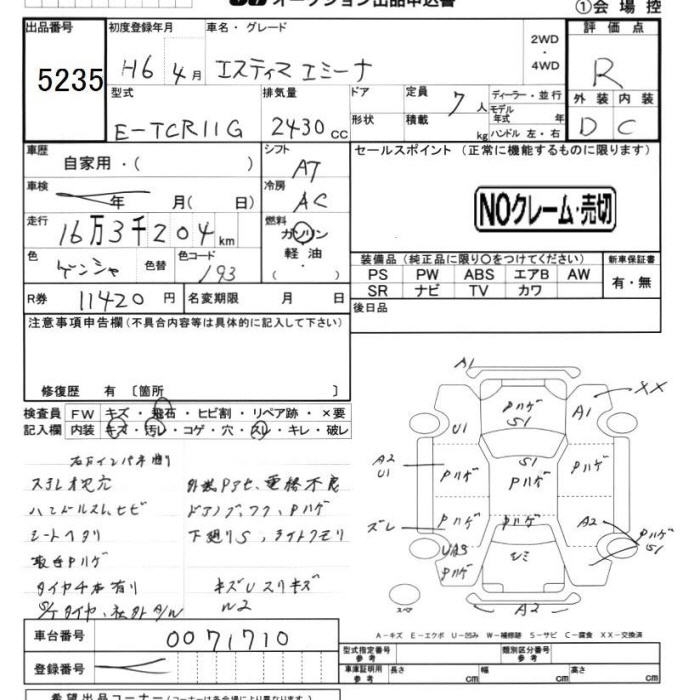 オークション出品申込書
①会場控
出品番号 初度登録年月 車名・グレード 評価点
5235 H6年4月 エスティマ エミーナ 2WD・4WD R
型式 排気量 ドア 定員 7人 ディーラー・並行
E-TCR11G 2430cc 形状 積載 kg モデル年式 年 ハンドル 左・右
外装 内装
D C
車歴 シフト セールスポイント (正常に機能するものに限ります)
自家用・( ) AT
車検 年 月( 日) 冷房 AC
NOクレーム・売切
走行 16万3千204km 燃料 ガソリン 軽油・( )
色 ゲンシャ 色替 色コード 193
装備品 (純正品に限り○をつけてください) 新車保証書
PS PW ABS エアB AW 有・無
SR ナビ TV カワ
R券 11420円 名変期限 月 日
後日品
注意事項申告欄 (不具合内容等は具体的に記入して下さい)
修復歴 有 〔箇所 〕
検査員 FW キズ・飛石・ヒビ割・リペア跡・×要
記入欄 内装 キズ・汚レ・コゲ・穴・スレ・キレ・破レ
ステレオ欠穴
ハンドルスレ、ヒビ ドアノブ、フク、Pハゲ
シートヘタリ 下廻りS、ライトクモリ
取手Pハゲ
タイヤチ本有り キズUスリキズ
S/Tタイヤ、社外A/W W2
A1
XX
Pハゲ
S1
A1
U1
S1
A2
U1
Pハゲ
Pハゲ
Pハゲ
ズレ
Pハゲ
Pハゲ
A2
Pハゲ
S1
Pハゲ
A2
A-キズ E-エクボ U-凹み W-補修跡 S-サビ C-腐食 XX-交換済
車台番号 0071710
型式指定番号 参考 類別区分番号 参考
登録番号
車庫証明用 参考 長さ cm 幅 cm 高さ cm
希望出品コーナー (コーナーは各会場により異なります。)